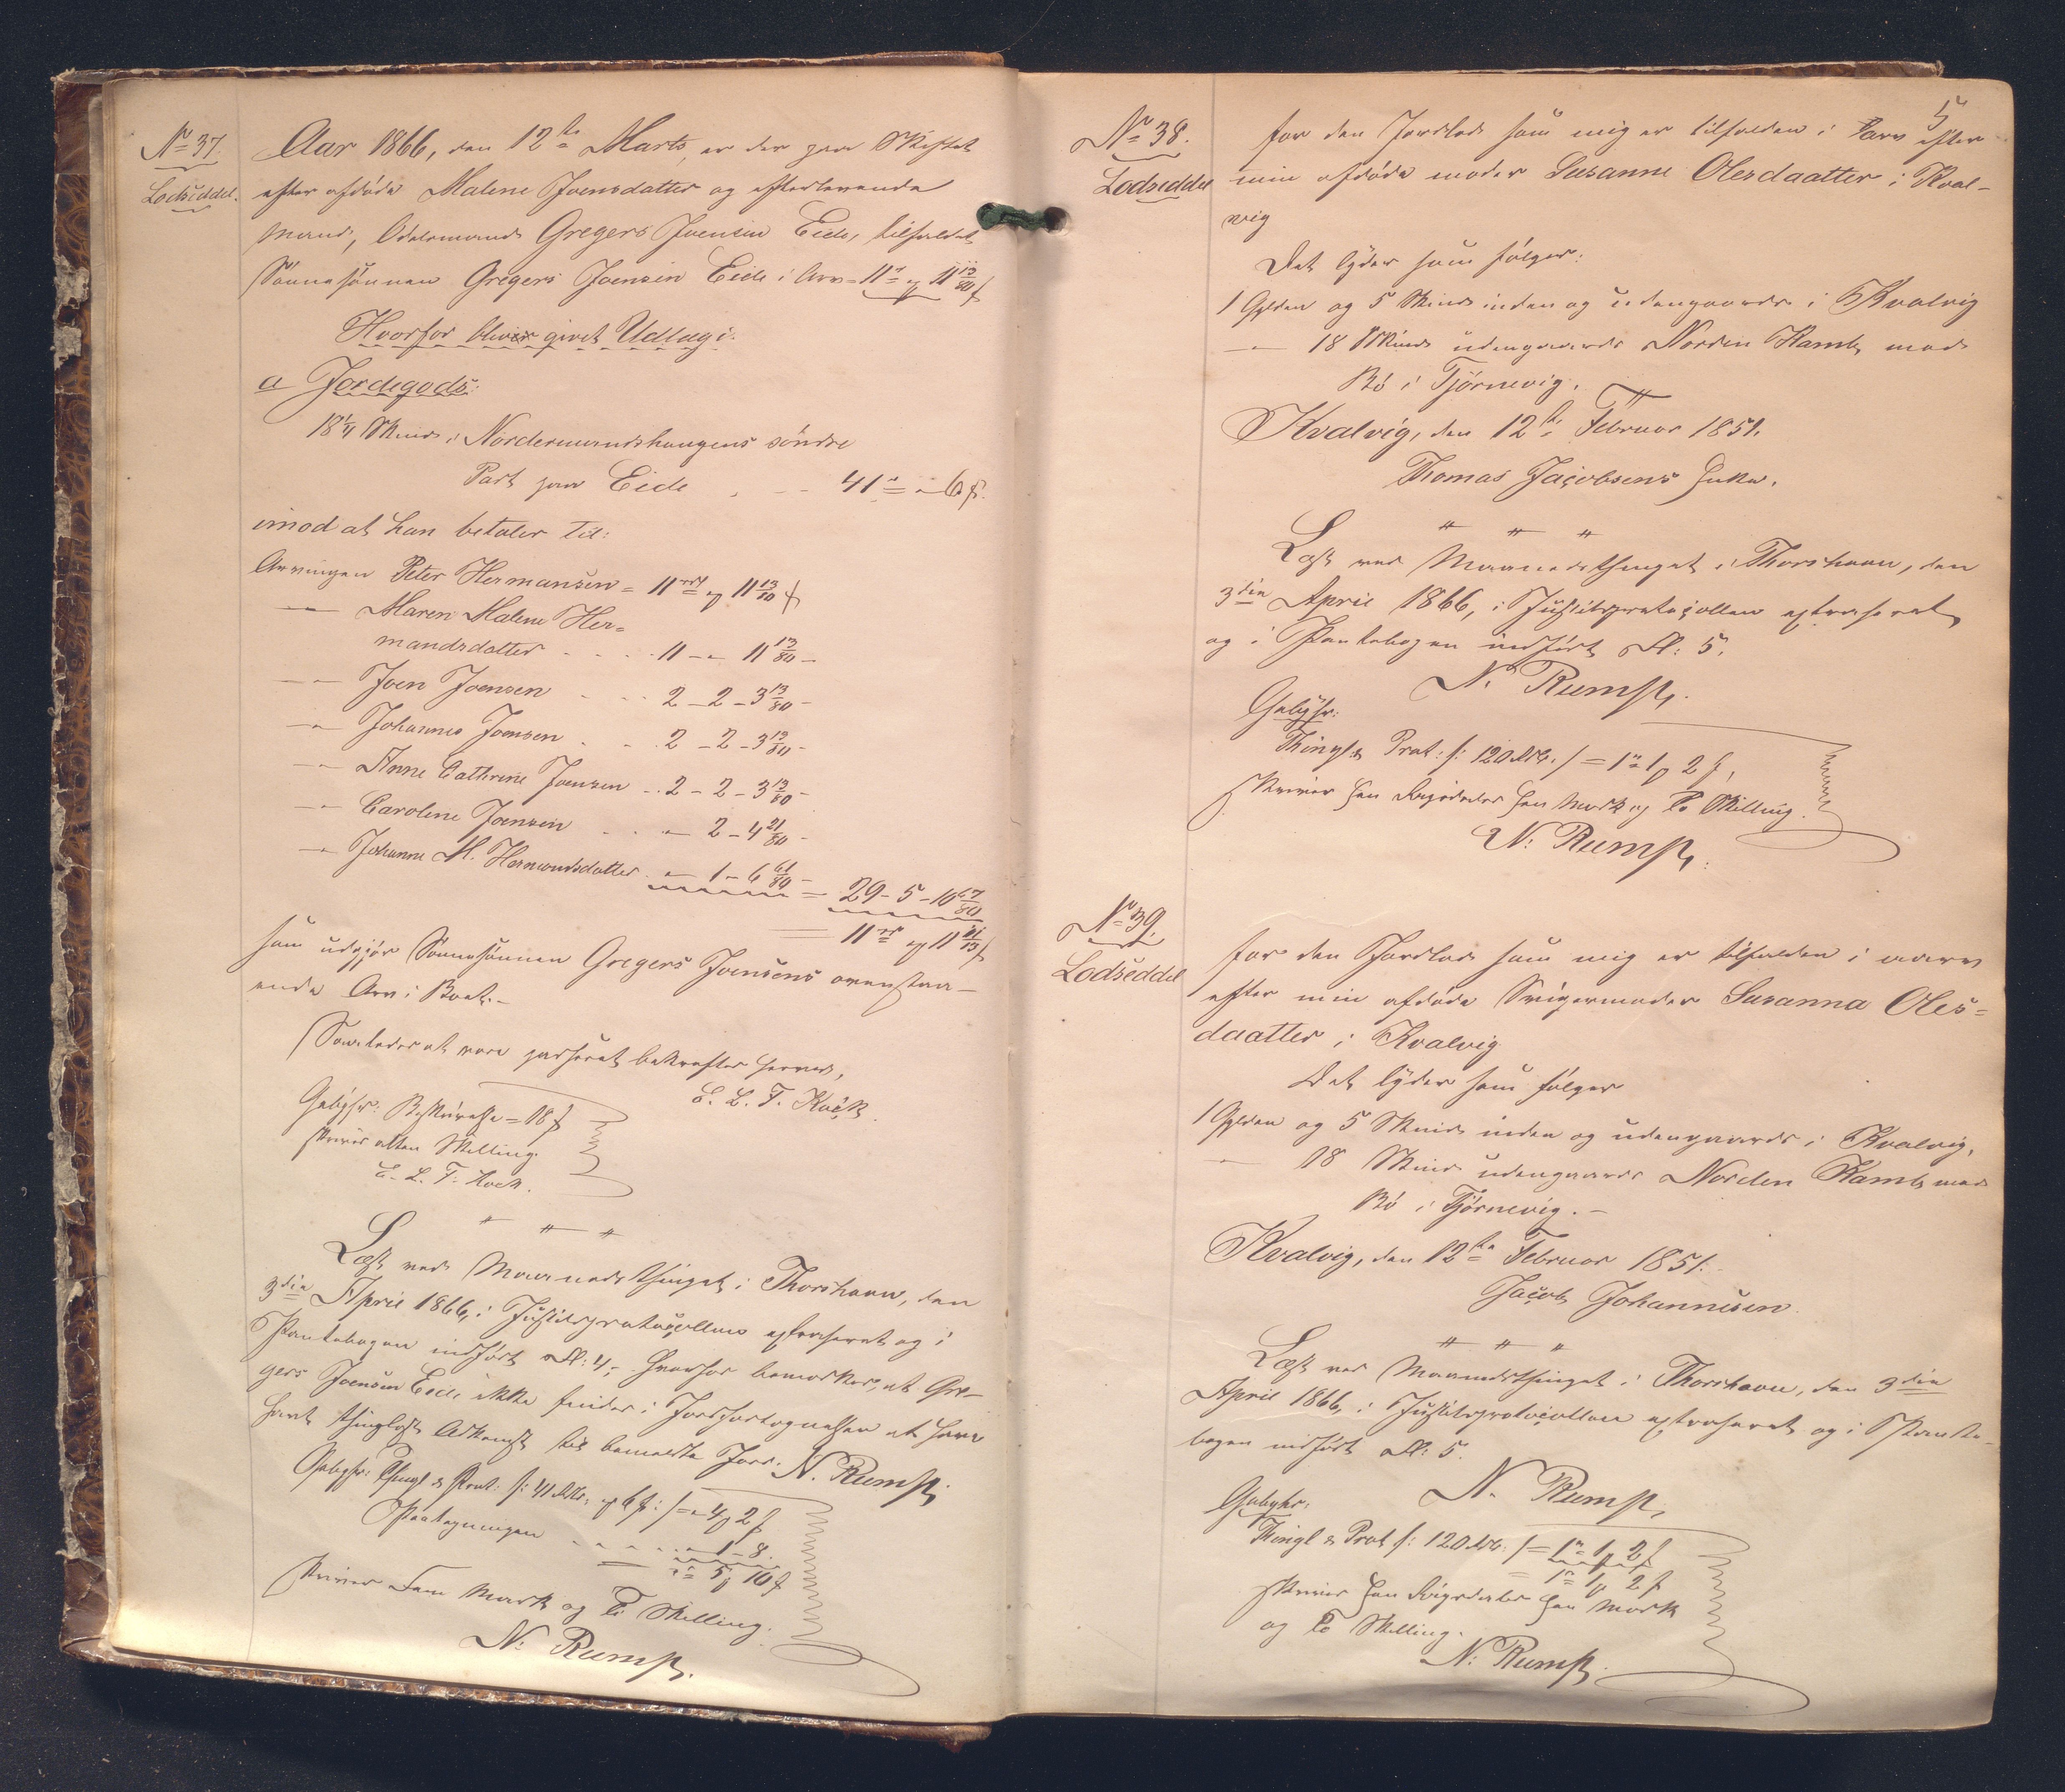 No 37.
Lodseddel.
Aar 1866, den 12te Marts, er der paa Skiftet
efter afdøde Malene Joensdatter og efterlevende
Mand, Odelsmand Gregers Joensen Eide, tilfaldet
Sønnesønnen Gregers Joensen Eide i Arv = 11 rd og 11 13/80 ß
Hvorfor bliver givet Udlæg i:
a Jordegods:
18 1/4 Skind i Nordermandshaugens søndre
Part paa Eide - - 41 rd = " - 6 ß.
imod at han betaler til:
Arvingen Peter Hermansen = 11 rd og 11 13/80 ß
— Maren Malene Her=
mandsdatter - - - - 11 - " - 11 13/80 -
— Joen Joensen - - - 2 - 2 - 3 13/80 -
— Johannes Joensen - - - 2 - 2 - 3 13/80 -
— Anne Cathrine Joensen - - 2 - 2 - 3 13/80 -
— Caroline Joensen - - - " - 2 - 4 21/80 -
— Johanne M. Hermandsdatter - " - 1 - 6 61/80 - = 29 - 5 - 10 67/80
= 11 rd og 11 13/80 ß
som udgjør Sønnesønnen Gregers Joensens ovenstaa-
ende Arv i Boet. -
Saaledes at være passeret bekræfter herved,
E. L. T. Kock.
Gebyhr: Beskrivelse = 18 ß
skriver atten Skilling.
E. L. T. Kock.
" " "
Læst ved Maanedsthinget i Thorshavn, den
3die April 1866, i Justitsprotocollen extraheret og i
Pantebogen indført Fol: 4, hvorfor bemærkes, at Gre-
gers Joensen Eide ikke findes i Jordfortegnelsen at have
havt thinglæst Adkomst til bemeldte Jord. N. Rump.
Gebyhr: Thingl & Prot: /: 41 Rdlr. og 6 ß :/ = " 4 ß 2 ß
Paategningen - - - - " 1 - 8.
= " 5 ß 10 ß
skriver Fem Mark og Ti Skilling.
N: Rump.
5
No 38.
Lodseddel
for den Jordlod som mig er tilfalden i Arv efter
min afdøde moder Susanne Olesdaatter i Kval-
vig
Det lyder som følger:
1 Gylden og 5 Skind inden og udengaards i Kvalvig
— " 18 Skind udengaards Norden Kamb, med
Bø i Tjørnevig.
Kvalvig, den 12te Februar 1851.
Thomas Jacobsens Enke.
" " "
Læst ved Maanedsthinget i Thorshavn, den
3die April 1866, i Justitsprotocollen extraheret
og i Pantebogen indført Fol: 5.
N. Rump.
Gebyhr:
Thingl & Prot: /: 120 Rdlr. :/ = 1 rd 1 ß 2 ß,
skriver Een Rigsdaler Een Mark og To Skilling.
N: Rump.
No 39.
Lodseddel
for den Jordlod som mig er tilfalden i aarv
efter min afdøde Svigermoder Susanna Oles=
daatter i Kvalvig
Det lyder som følger
1 Gylden og 5 Skind inden og udengaards i Kvalvig,
— " 18 Skind udengaards Norden Kamb, med
Bø i Tjørnevig. -
Kvalvig, den 12te Februar 1851.
Jacob Johannesen.
" " "
Læst ved Maanedsthinget i Thorshavn, den 3die
April 1866, i Justitsprotocollen extraheret og i Pante-
bogen indført Fol: 5.
N. Rump,
Gebyhr:
Thingl & Prot /: 120 Rdlr. :/ = 1 rd 1 ß 2 ß
= 1 rd 1 ß 2 ß
skriver Een Rigsdaler Een Mark
og To Skilling.
N: Rump.